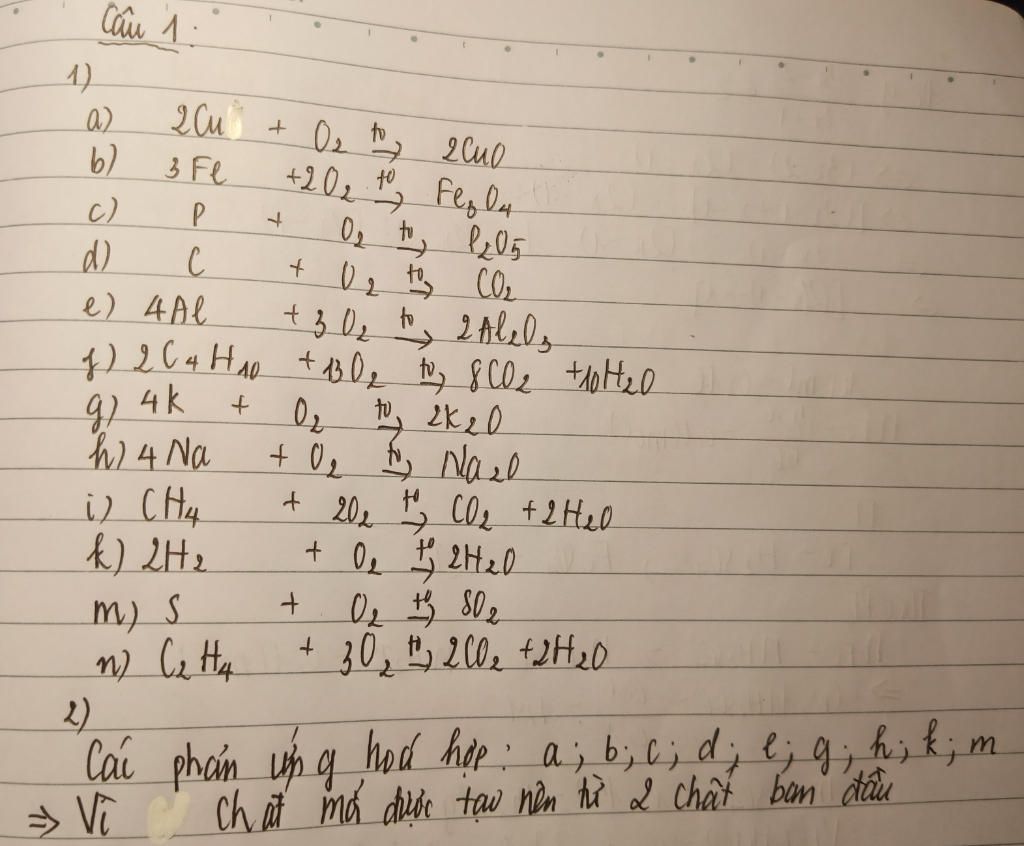 Câu 1:
1)
a) 2Cu + O₂ t⁰→ 2CuO
b) 3Fe +2O₂ t⁰→ Fe₃O₄
c) P + O₂ t⁰→ P₂O₅
d) C + O₂ t⁰→ CO₂
e) 4Al +3O₂ t⁰→ 2Al₂O₃
f) 2C₄H₁₀ +13O₂ t⁰→ 8CO₂ +10H₂O
g) 4K + O₂ t⁰→ 2K₂O
h) 4Na + O₂ t⁰→ Na₂O
i) CH₄ + 2O₂ t⁰→ CO₂ +2H₂O
k) 2H₂ + O₂ t⁰→ 2H₂O
m) S + O₂ t⁰→ SO₂
n) C₂H₄ + 3O₂ t⁰→ 2CO₂ +2H₂O
2)
Các phản ứng hoá hợp: a; b; c; d; e; g; h; k; m
⇒ Vì chất mới được tạo nên từ 2 chất ban đầu